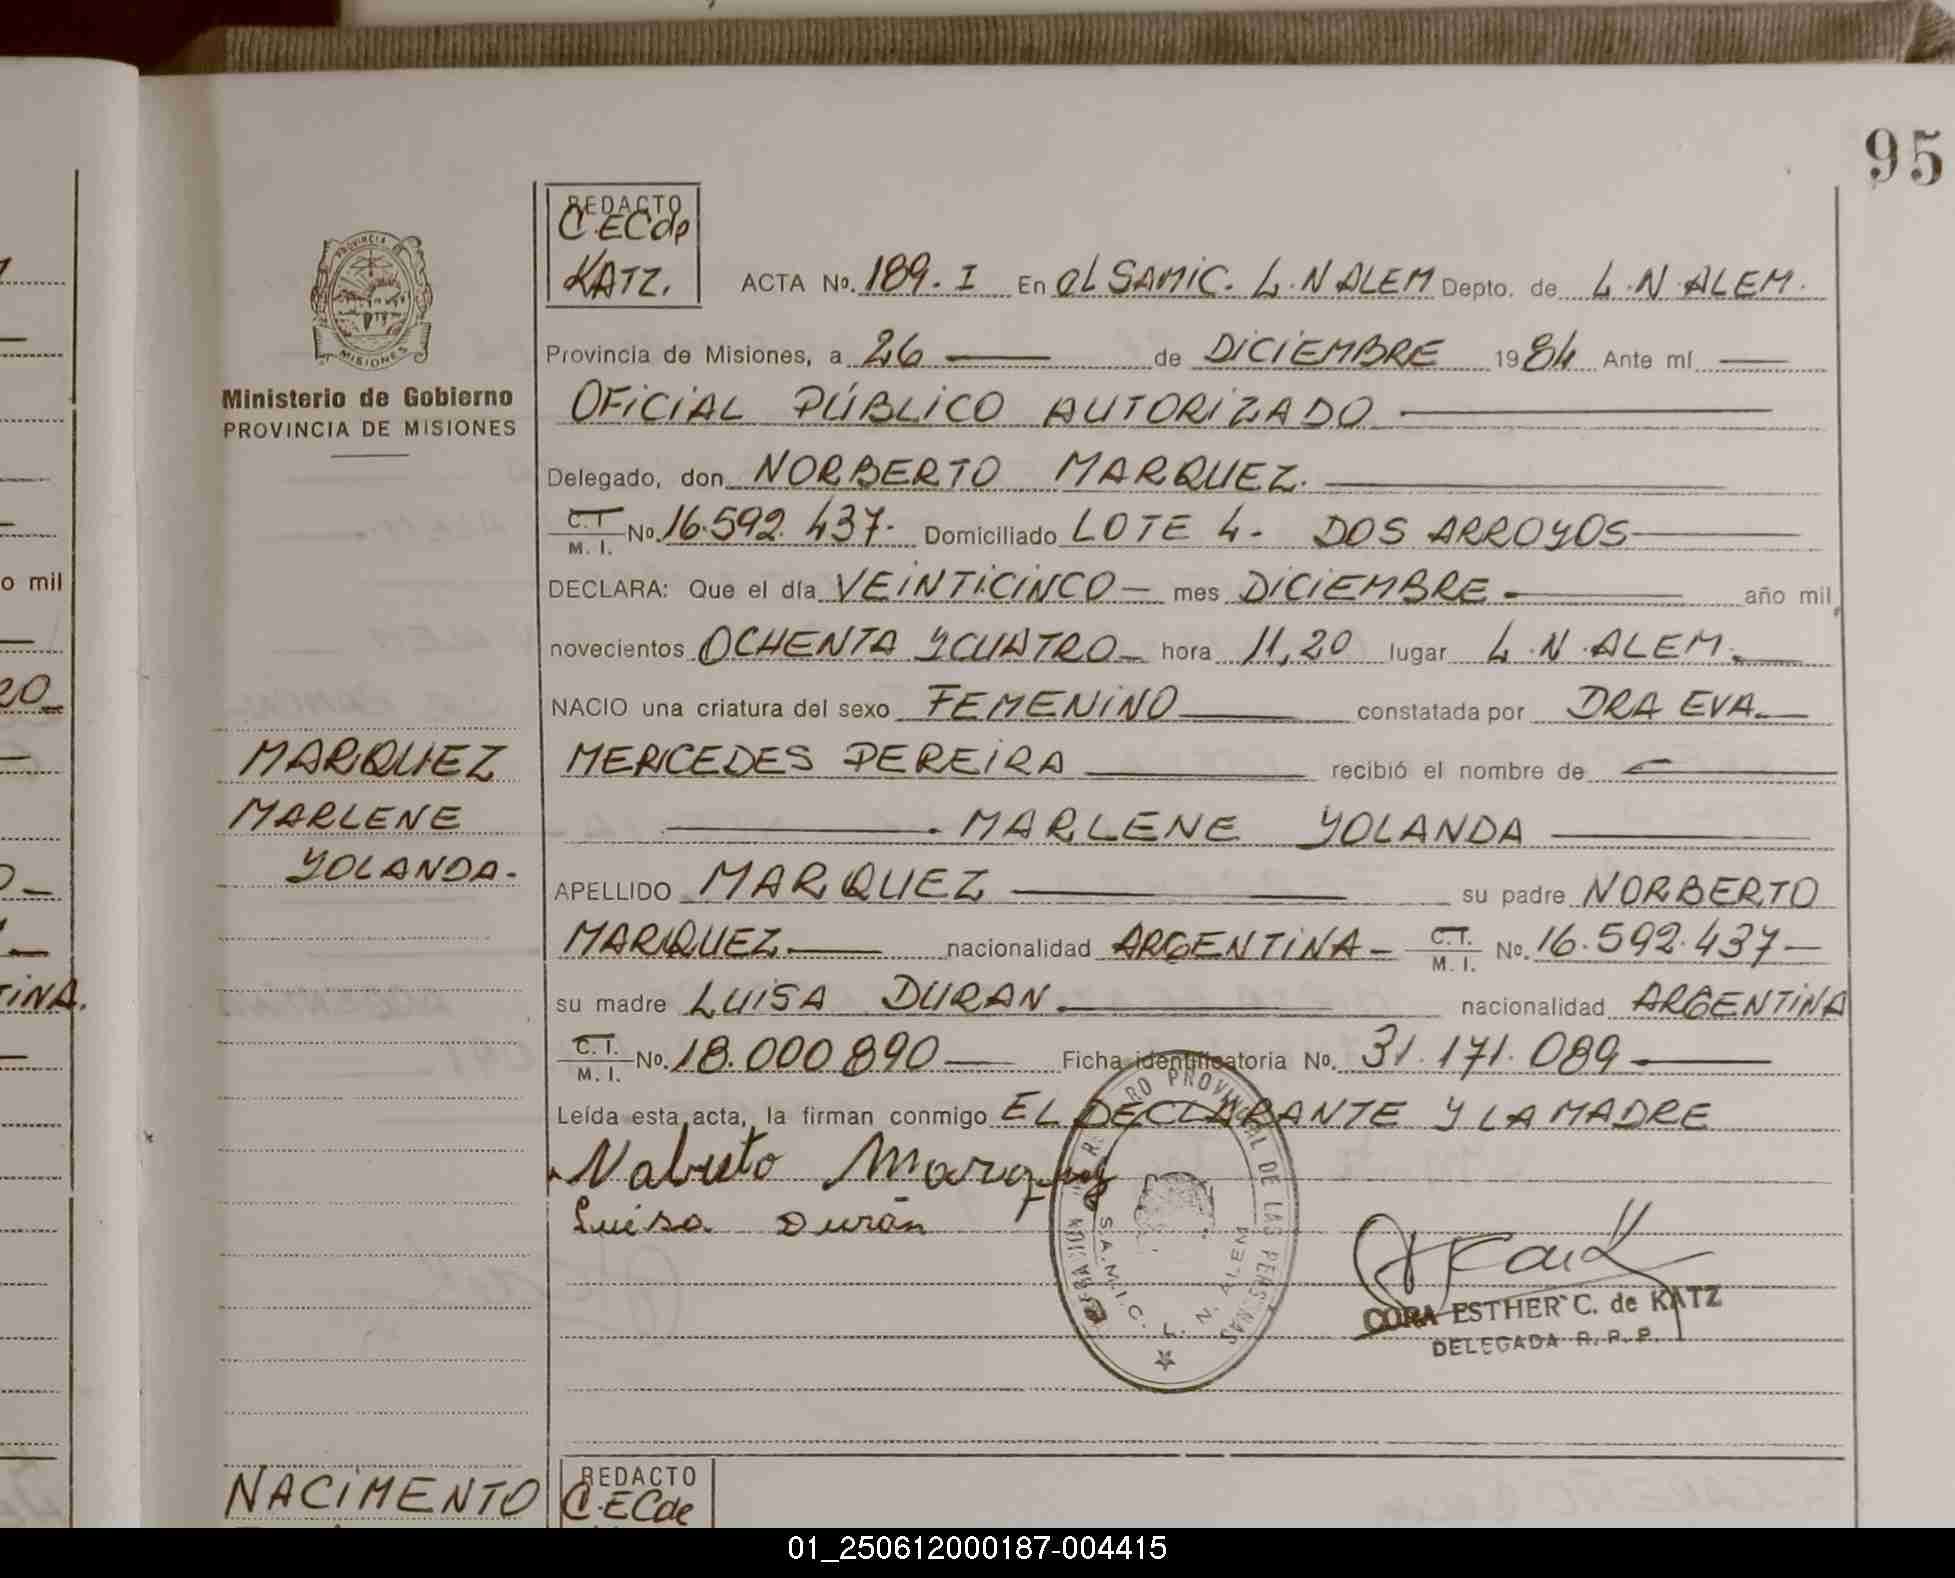 95
REDACTO
C.ECde
KATZ.
ACTA Nº. 189. I En el SAMIC. L.N ALEM Depto. de L.N.ALEM.
PROVINCIA DE
MISIONES
Ministerio de Gobierno
PROVINCIA DE MISIONES
Provincia de Misiones, a 26 — de DICIEMBRE 1984 Ante mí —
OFICIAL PÚBLICO AUTORIZADO —
Delegado, don NORBERTO MARQUEZ. —
C.I. M. I. Nº. 16.592.437. Domiciliado LOTE 4. DOS ARROYOS —
DECLARA: Que el día VEINTICINCO — mes DICIEMBRE — año mil
novecientos OCHENTA Y CUATRO — hora 11,20 lugar L.N.ALEM. —
NACIO una criatura del sexo FEMENINO — constatada por DRA EVA. —
MERCEDES PEREIRA — recibió el nombre de —
— MARLENE YOLANDA —
MARQUEZ
MARLENE
YOLANDA.
APELLIDO MARQUEZ — su padre NORBERTO
MARQUEZ — nacionalidad ARGENTINA — C.I. M. I. Nº. 16.592.437 —
su madre LUISA DURAN — nacionalidad ARGENTINA
C.I. M. I. Nº. 18.000890 — Ficha identificatoria Nº. 31.171.089 —
Leída esta acta, la firman conmigo EL DECLARANTE Y LA MADRE
Norberto Marquez
Luisa Durán
PROVINCIAL DE LAS PERSONAS
S.A.M.I.C. L. N. ALEM
CORA ESTHER C. de KATZ
DELEGADA R. P. P.
NACIMENTO
REDACTO
C.ECde
o mil
20
TINA.
01_250612000187-004415